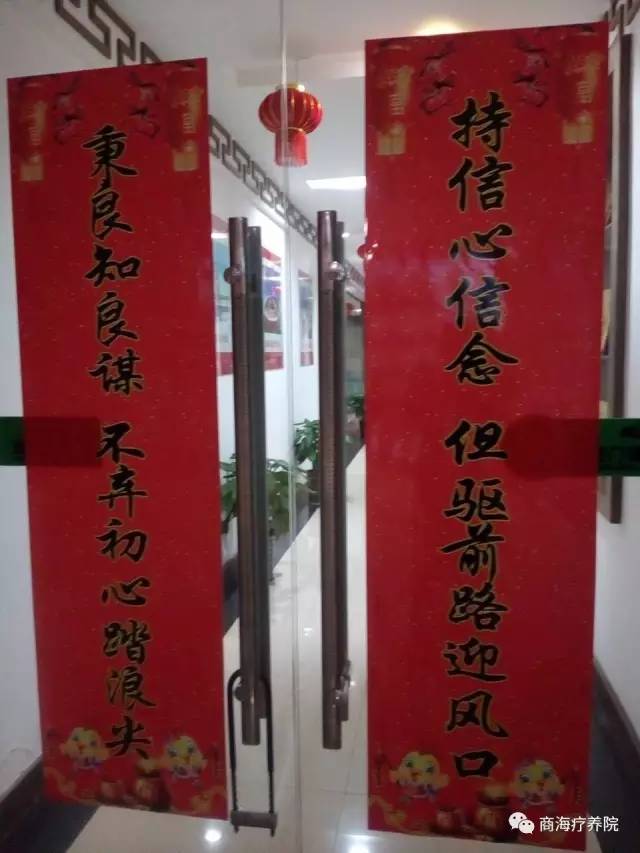 持信心信念 但驱前路迎风口
秉良知良谋 不弃初心踏浪尖
商海疗养院